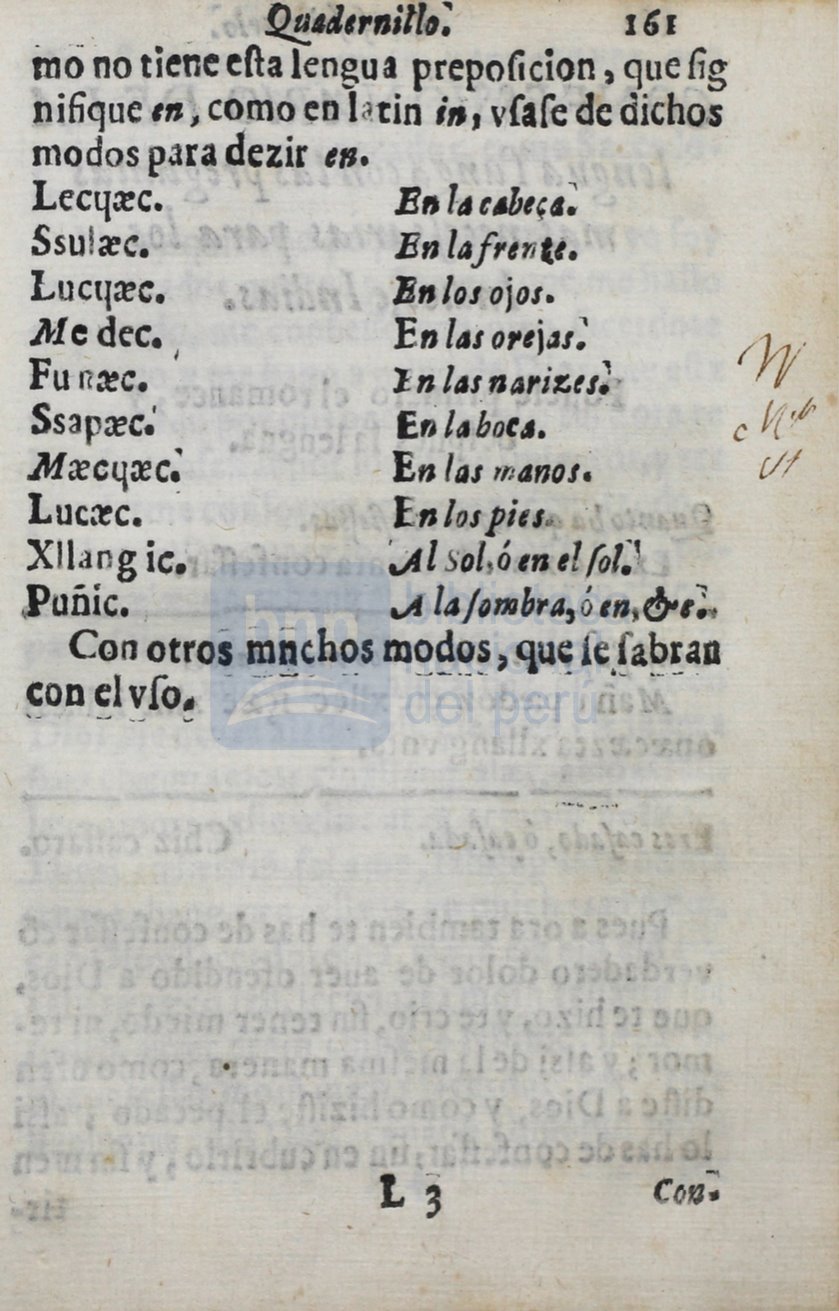 Quadernillo. 161
mo no tiene eſta lengua prepoſicion, que ſig
nifique en, como en latin in, vſaſe de dichos
modos para dezir en.
Lecɥæc. En la cabeça.
Ssulæc. En la frente.
Lucɥæc. En los ojos.
Me dec. En las orejas.
Fu næc. En las narizes.
Ssapæc. En la boca.
Mæcɥæc. En las manos.
Lucæc. En los pies.
Xllang ic. Al Sol, ó en el ſol.
Puñic. A la ſombra, ó en, &c.
Con otros mnchos modos, que ſe ſabran
con el vſo.
L 3 Con-
bnp
del perú